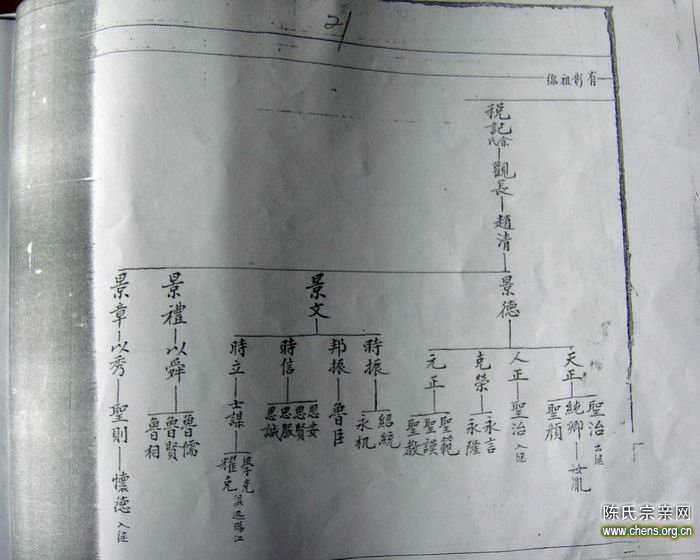 21
有彰祖係
稅記
余氏
觀長
趙清
景德
景文
景禮
景章
天正
人正
克榮
元正
時振
邦振
時信
時立
以舜
以秀
聖治 出继
純卿
汝胤
聖顏
聖治 入继
永言
永隆
聖範
聖謨
聖教
紹統
永机
魯臣
思安
思賢
思服
思誠
士謀
學克
耀克
魯儒
魯賢
魯相
聖則
懷德 入继
陈氏宗亲网
www.chens.org.cn